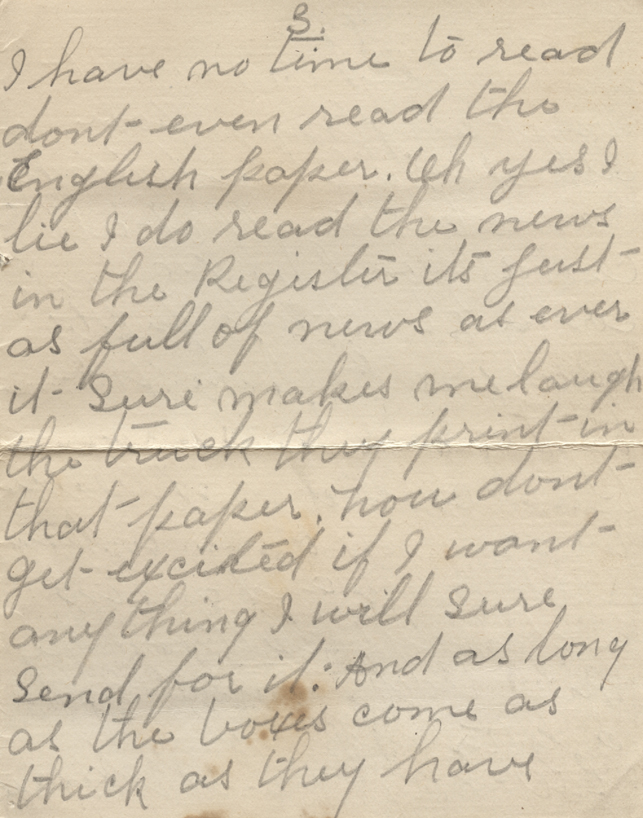 3.
I have no time to read
dont even read the
English paper. Oh yes I
lie I do read the news
in the Register its just
as full of news as ever
it sure makes me laugh
the truck they print in
that paper. now dont
get excited if I want
anything I will sure
send for it. And as long
as the boxes come as
thick as they have